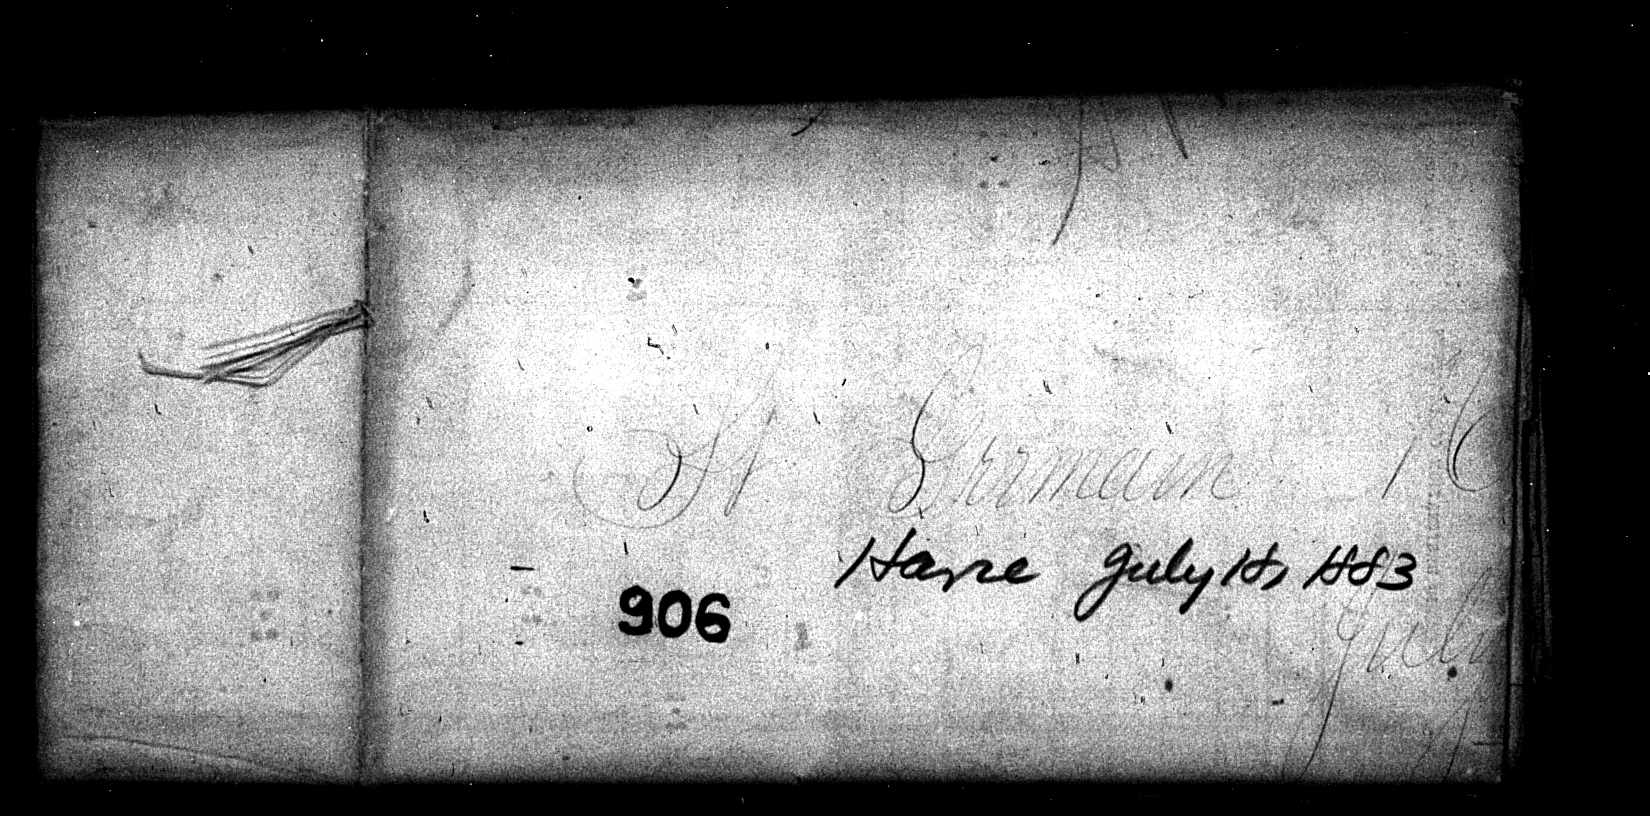 St Germain 16
Havre July 18, 1883
906
July